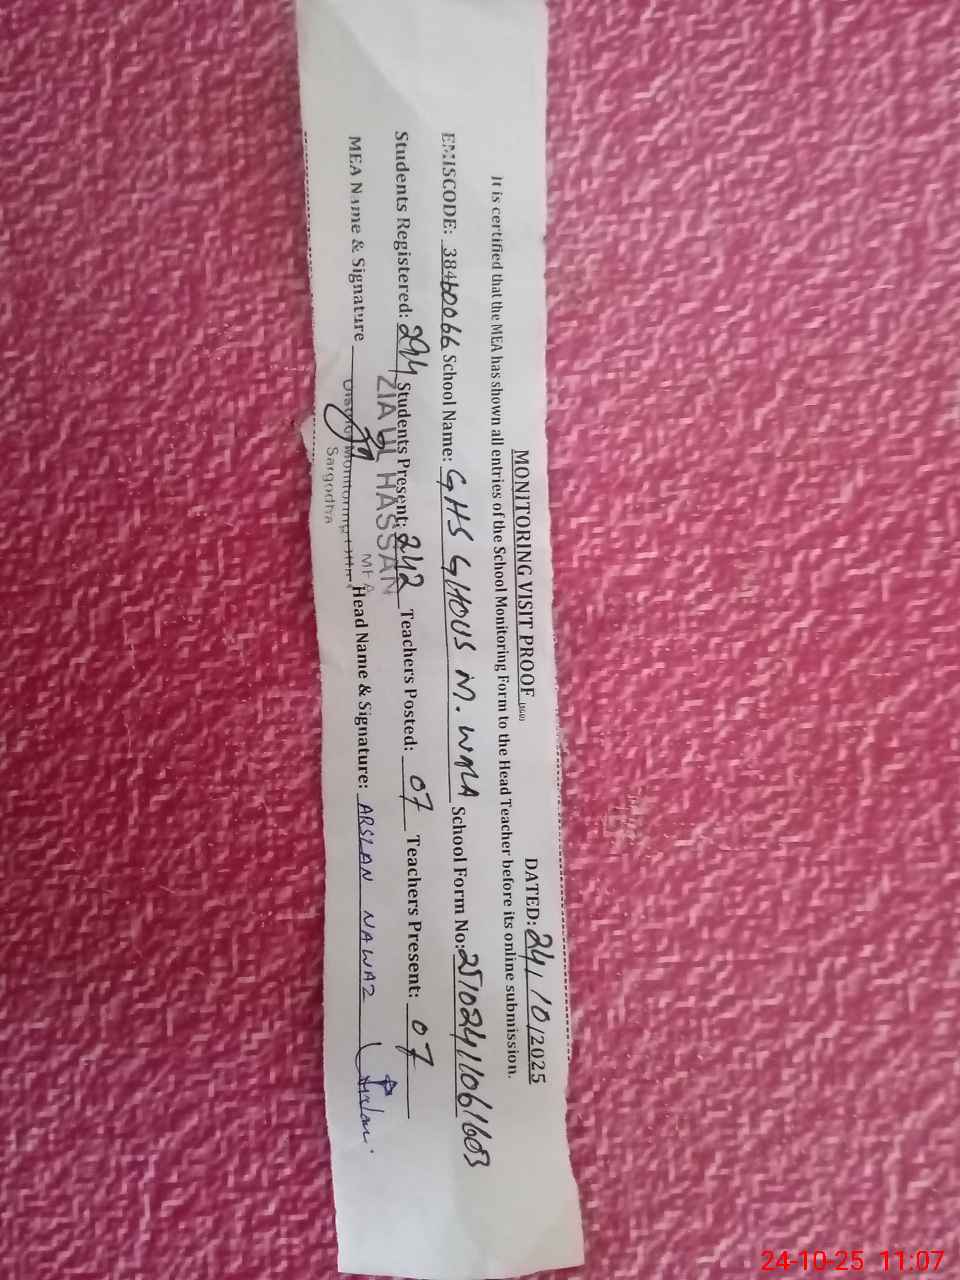 MONITORING VISIT PROOF (SGD) DATED: 24/10/2025
It is certified that the MEA has shown all entries of the School Monitoring Form to the Head Teacher before its online submission.
EMISCODE: 38460066 School Name: GHS GHOUS M. WALA School Form No: 25102411061603
Students Registered: 294 Students Present: 242 Teachers Posted: 07 Teachers Present: 07
ZIA UL HASSAN
MEA
MEA Name & Signature Head Name & Signature: ARSLAN NAWAZ Arslan
District Monitoring
Sargodha
24-10-25 11:07